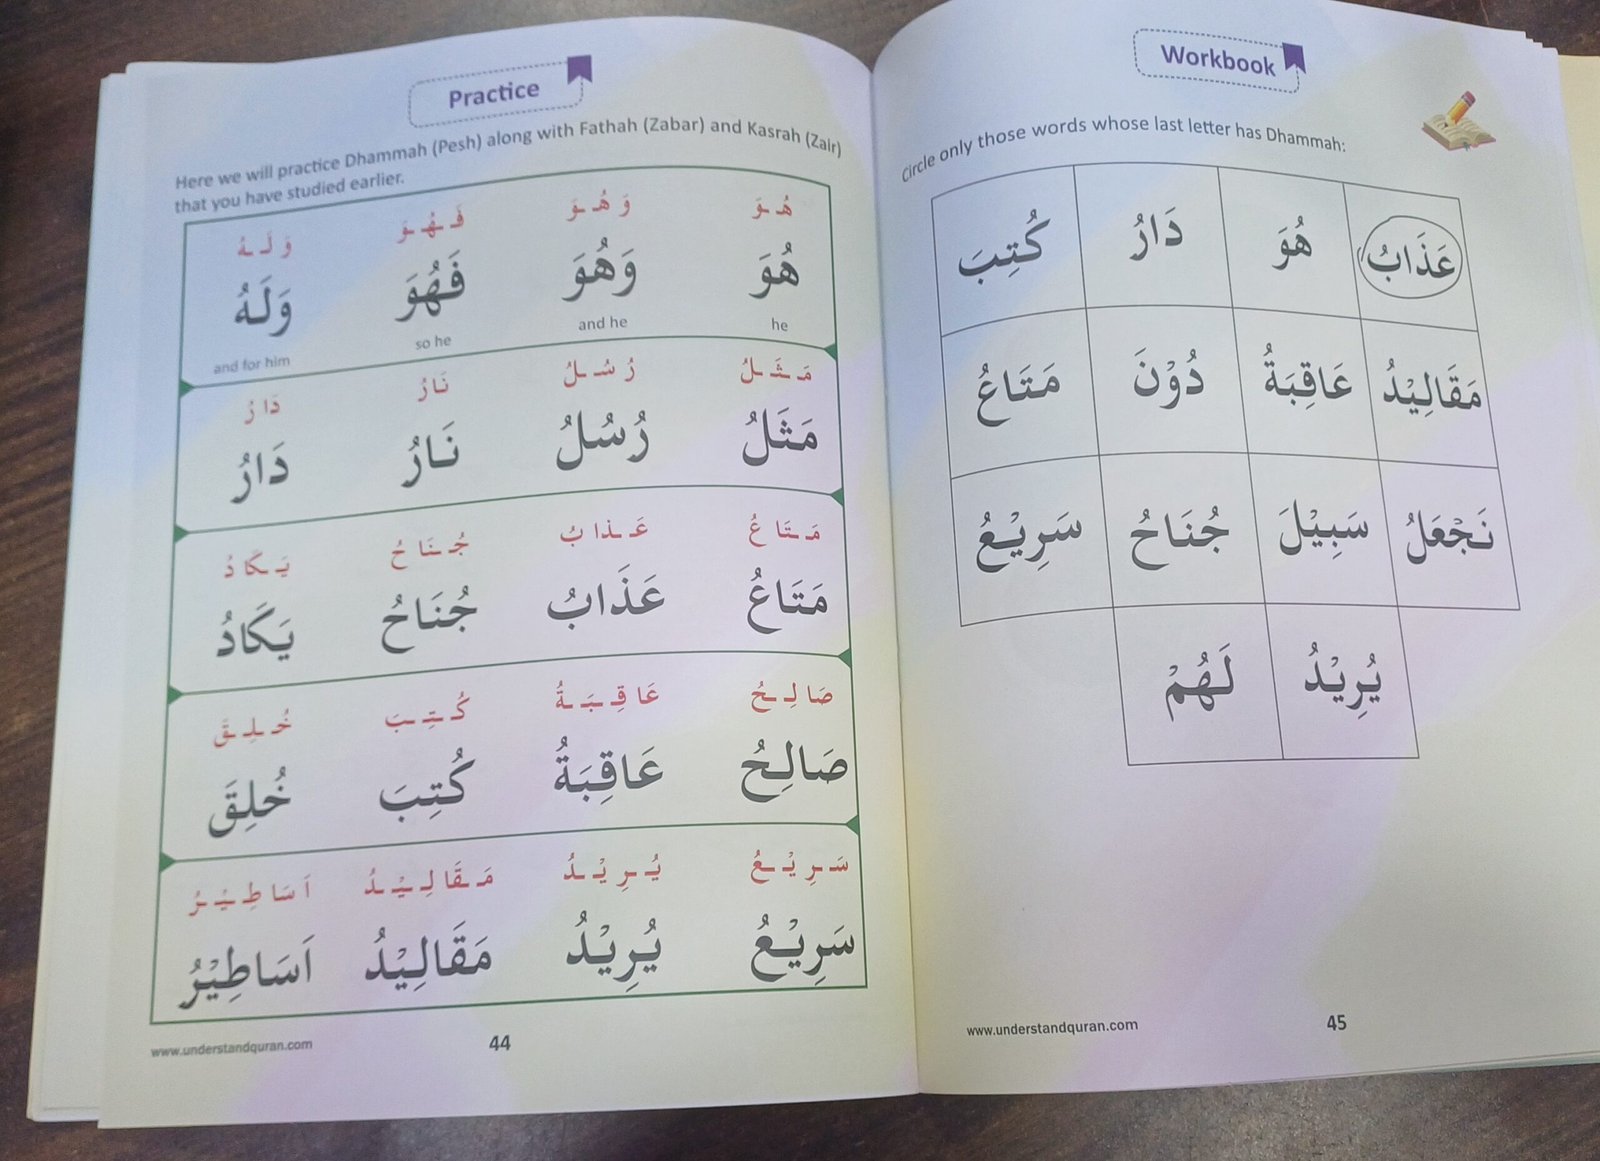 Practice
Here we will practice Dhammah (Pesh) along with Fathah (Zabar) and Kasrah (Zair)
that you have studied earlier.
هُـ وَ وَ هُـ وَ فَـ هُـ وَ وَ لَـ هُ
هُوَ وَهُوَ فَهُوَ وَلَهُ
he and he so he and for him
مَـ ثَـ لُ رُ سُـ لُ نَا رُ دَا رُ
مَثَلُ رُسُلُ نَارُ دَارُ
مَـ تَا عُ عَـ ذَا بُ جُـ نَا حُ يَـ كَا دُ
مَتَاعُ عَذَابُ جُنَاحُ يَكَادُ
صَا لِـ حُ عَا قِـ بَـ ةُ كُـ تِـ بَ خُـ لِـ قَ
صَالِحُ عَاقِبَةُ كُتِبَ خُلِقَ
سَـ رِ يْـ عُ يُـ رِ يْـ دُ مَـ قَا لِـ يْـ دُ اَ سَا طِـ يْـ رُ
سَرِيْعُ يُرِيْدُ مَقَالِيْدُ اَسَاطِيْرُ
www.understandquran.com
44
Workbook
Circle only those words whose last letter has Dhammah:
عَذَابُ هُوَ دَارُ كُتِبَ
مَقَالِيْدُ عَاقِبَةُ دُوْنَ مَتَاعُ
نَجْعَلُ سَبِيْلَ جُنَاحُ سَرِيْعُ
يُرِيْدُ لَهُمْ
www.understandquran.com
45